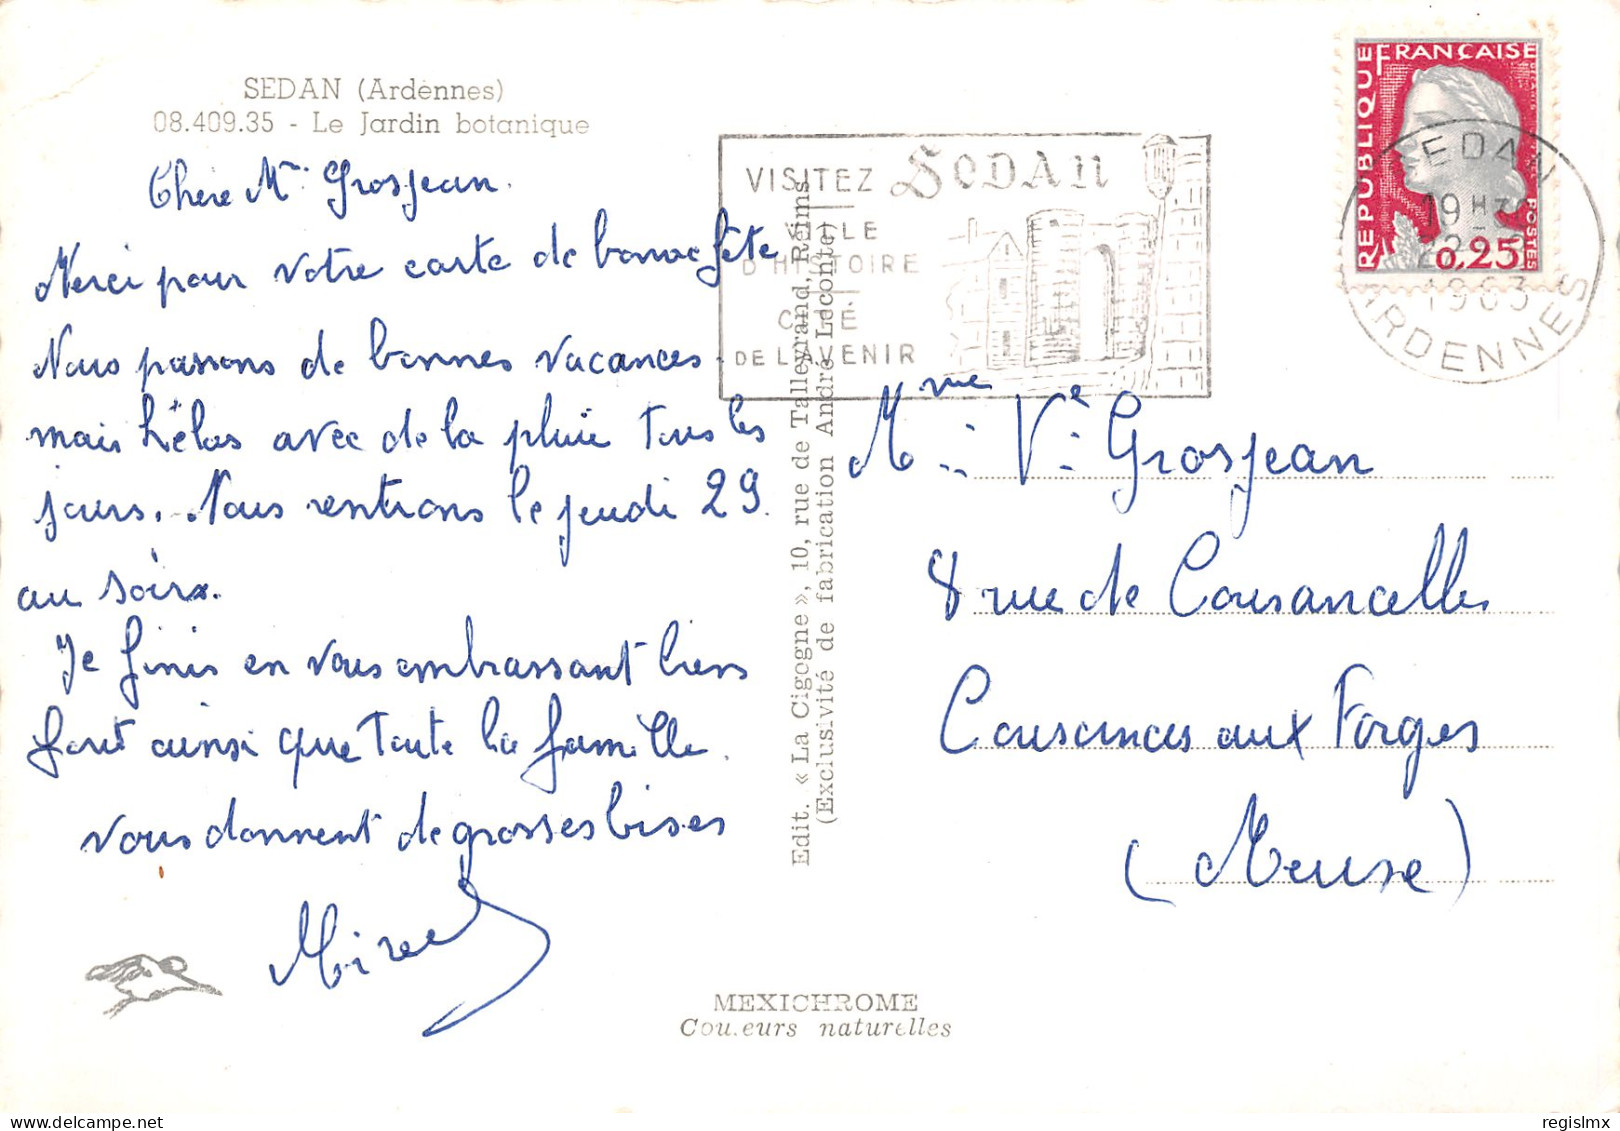 SEDAN (Ardennes)
08.409.35 - Le Jardin botanique
Chère Me Grosjean.
Merci pour votre carte de bonne fête
Nous passons de bonnes vacances.
mais hélas avec de la pluie tous les
jours. Nous rentrons le jeudi 29
au soir.
Je finis en vous embrassant biens
fort ainsi que toute la famille.
vous donnent de grosses bises
Edit. « La Cigogne », 10, rue de Talleyrand, Reims
(Exclusivité de fabrication André Leconte)
MEXICHROME
Couleurs naturelles
VISITEZ SEDAN
VILLE
D'HISTOIRE
CITÉ
DE L'AVENIR
RÉPUBLIQUE FRANÇAISE
POSTES
0,25
SEDAN
19 H30
1963
ARDENNES
Mme Ve Grosjean
8 rue de Cousancelles
Cousances aux Forges
(Meuse)
regislmx